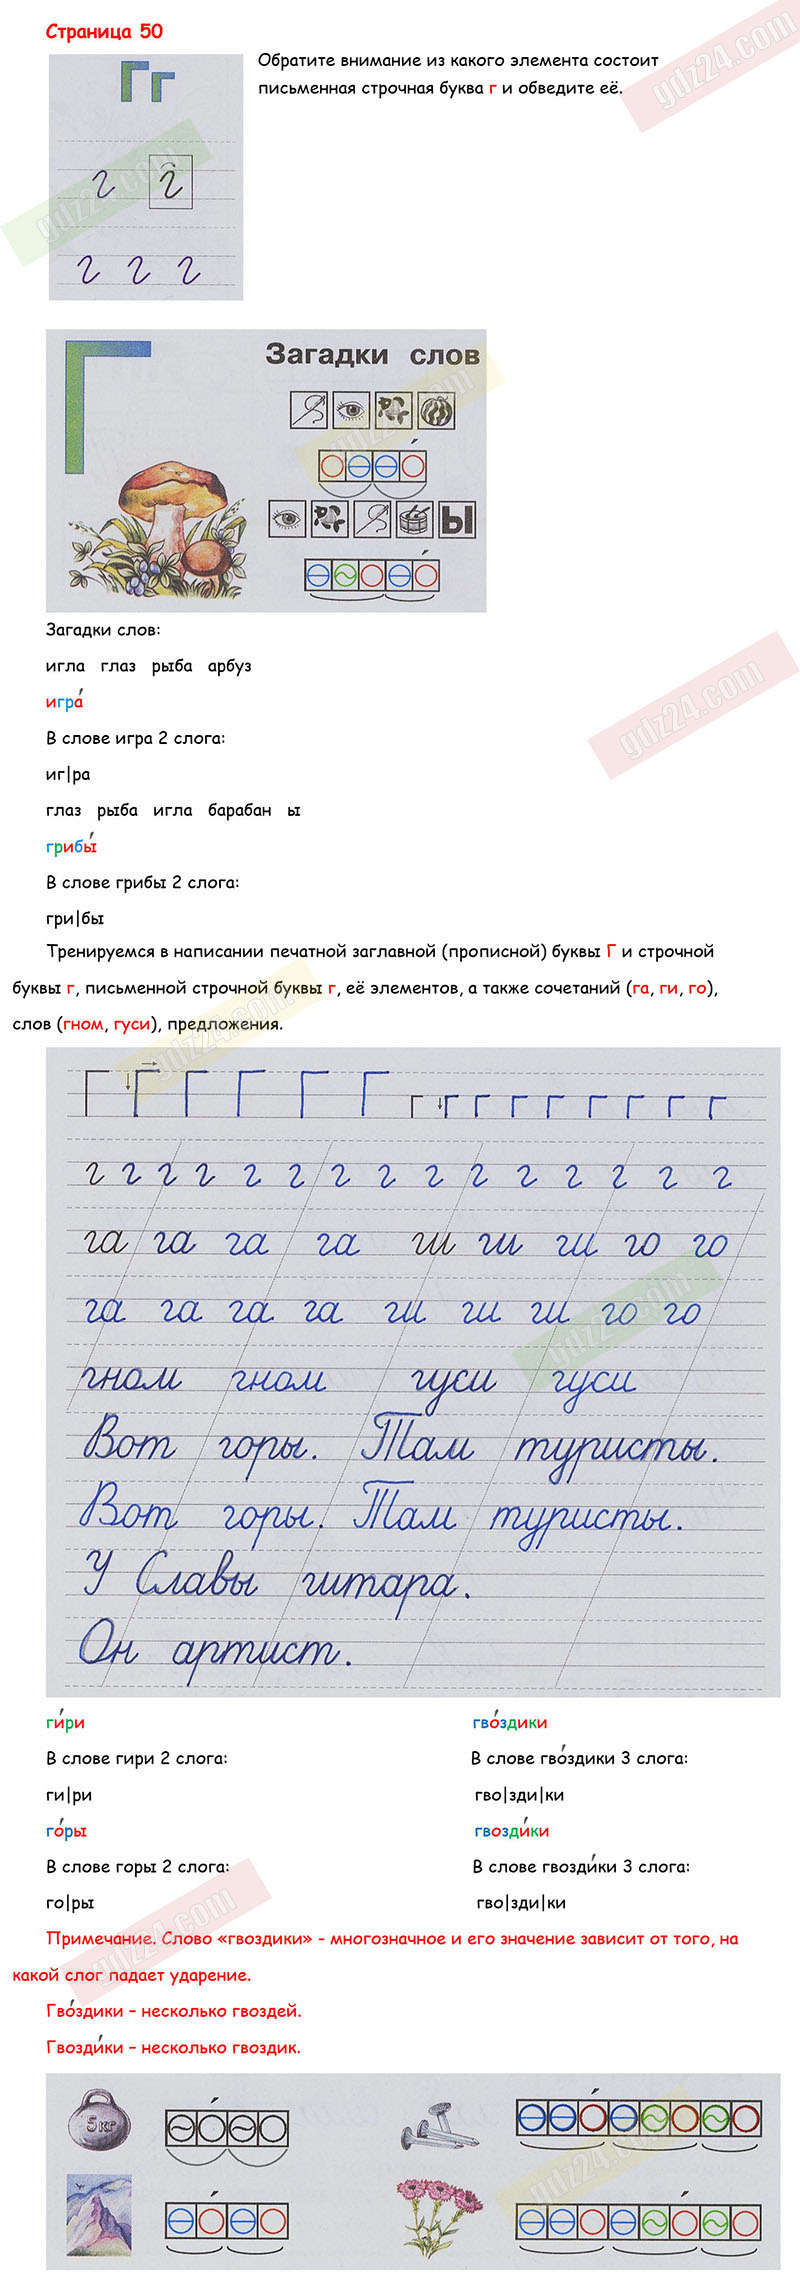 Страница 50
Гг
Обратите внимание из какого элемента состоит
письменная строчная буква г и обведите её.
г г
г г г
Г
Загадки слов
Ы
Загадки слов:
игла глаз рыба арбуз
игра́
В слове игра 2 слога:
иг|ра
глаз рыба игла барабан ы
грибы́
В слове грибы 2 слога:
гри|бы
Тренируемся в написании печатной заглавной (прописной) буквы Г и строчной
буквы г, письменной строчной буквы г, её элементов, а также сочетаний (га, ги, го),
слов (гном, гуси), предложения.
Г Г Г Г Г Г г г г г г г г г г
г г г г г г г г г г г г г г г
га га га га ги ги ги го го
га га га га ги ги ги го го
гном гном гуси гуси
Вот горы. Там туристы.
Вот горы. Там туристы.
У Славы гитара.
Он артист.
ги́ри гво́здики
В слове гири 2 слога: В слове гво́здики 3 слога:
ги|ри гво|зди|ки
го́ры гвозди́ки
В слове горы 2 слога: В слове гвозди́ки 3 слога:
го|ры гво|зди|ки
Примечание. Слово «гвоздики» - многозначное и его значение зависит от того, на
какой слог падает ударение.
Гво́здики – несколько гвоздей.
Гвозди́ки – несколько гвоздик.
5 кг
gdz24.com
gdz24.com
gdz24.com
gdz24.com
gdz24.com
gdz24.com
gdz24.com
gdz24.com